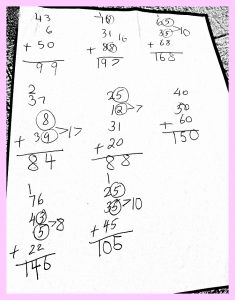 43
6
+ 50
99
78
31 16
+ 88
197
65
35 >10
+ 68
168
2
37
8
+ 39 >17
84
25
12 >7
31
+ 20
88
40
50
+ 60
150
1
76
43
5 >8
+ 22
146
1
25
35 >10
+ 45
105